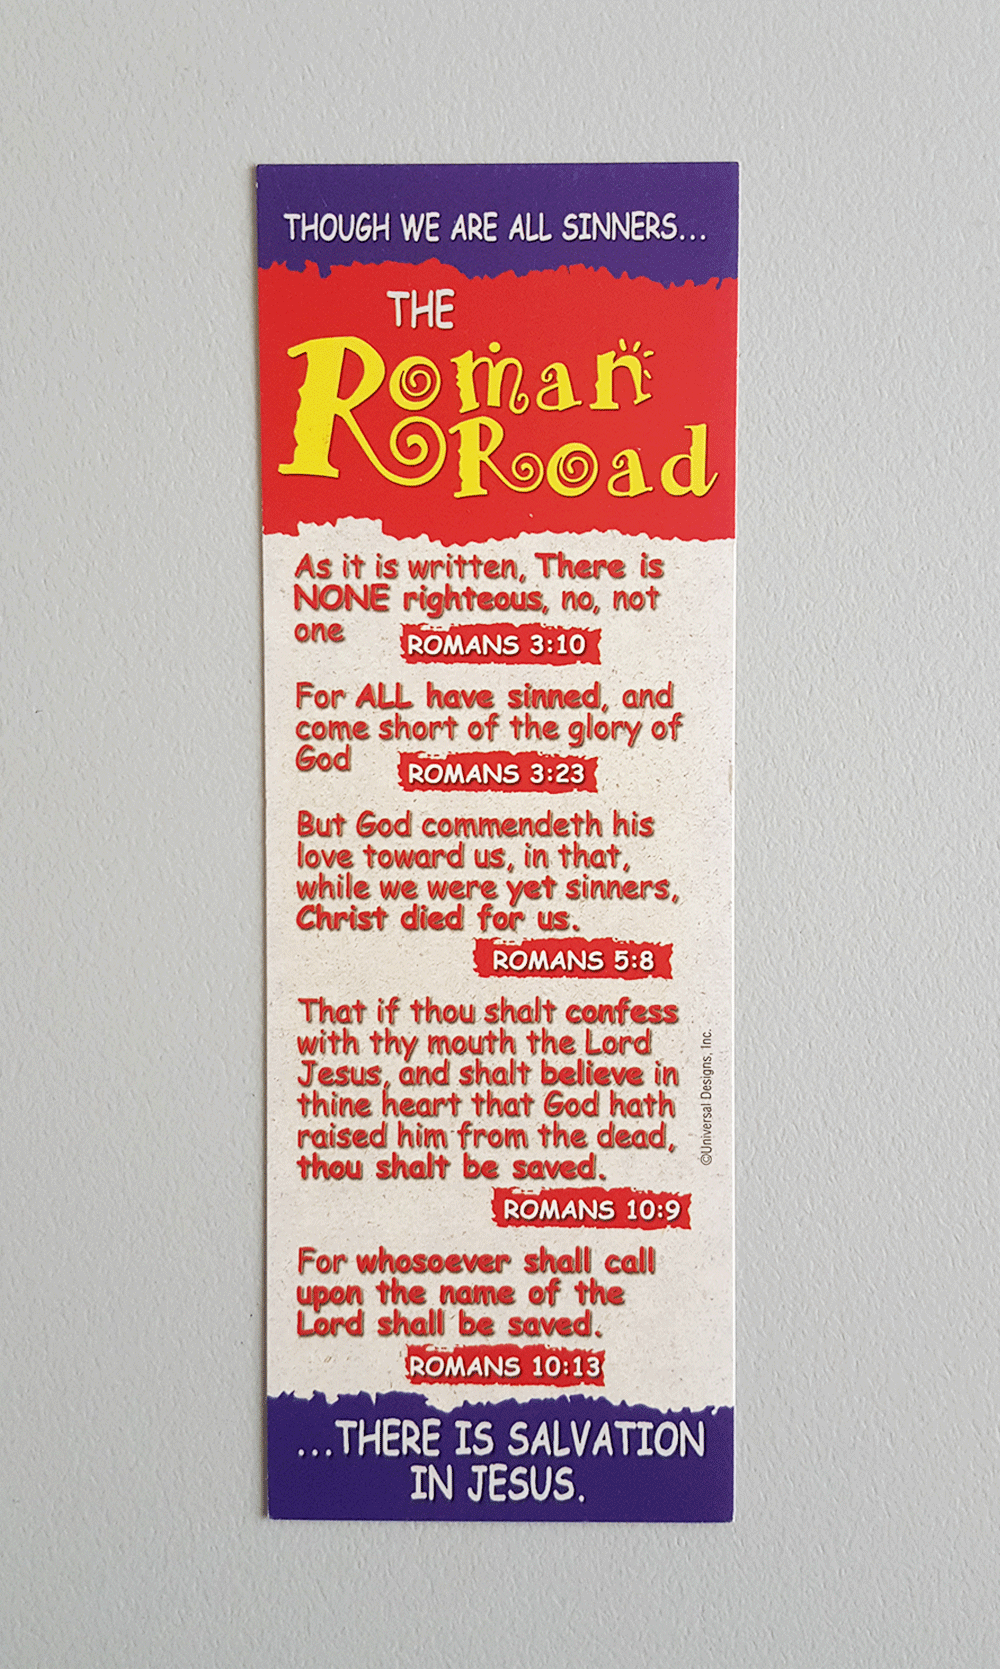 THOUGH WE ARE ALL SINNERS...
THE
Roman
Road
As it is written, There is
NONE righteous, no, not
one
ROMANS 3:10
For ALL have sinned, and
come short of the glory of
God
ROMANS 3:23
But God commendeth his
love toward us, in that,
while we were yet sinners,
Christ died for us.
ROMANS 5:8
That if thou shalt confess
with thy mouth the Lord
Jesus, and shalt believe in
thine heart that God hath
raised him from the dead,
thou shalt be saved.
ROMANS 10:9
©Universal Designs, Inc.
For whosoever shall call
upon the name of the
Lord shall be saved.
ROMANS 10:13
...THERE IS SALVATION
IN JESUS.